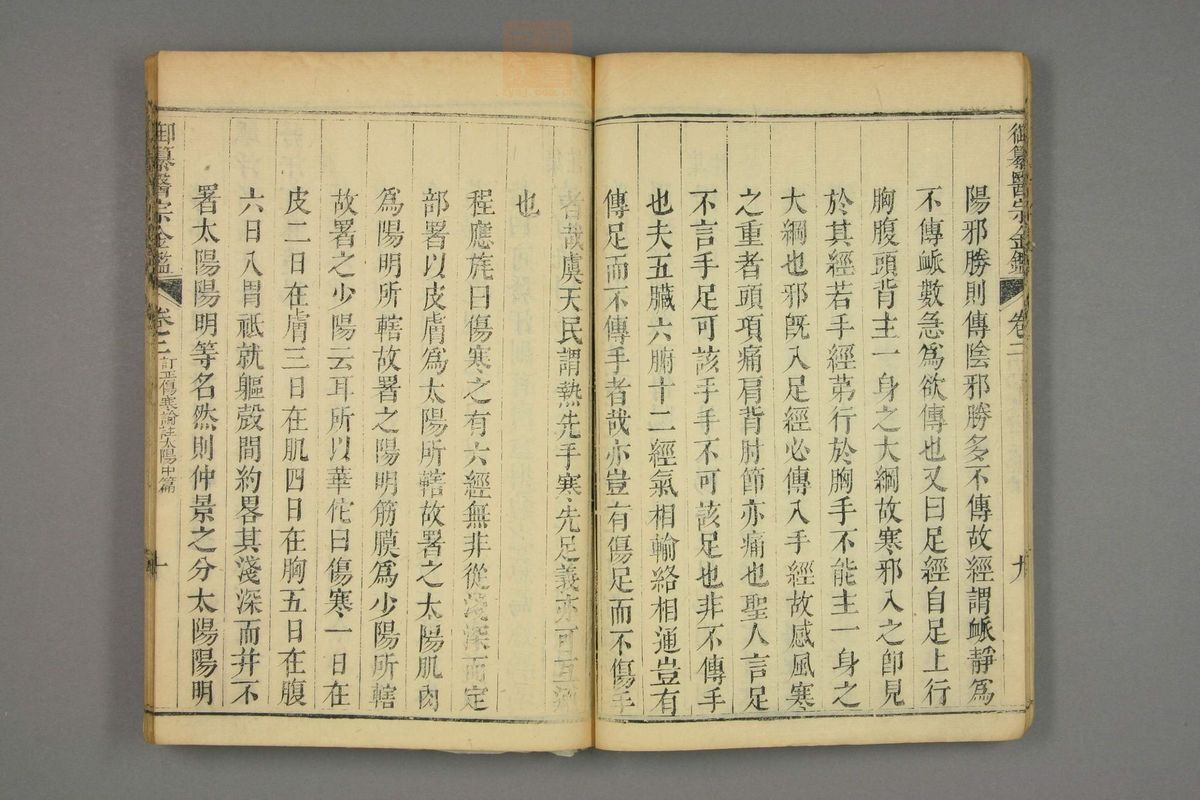 御纂醫宗金鑑 卷二 九
陽邪勝則傳陰邪勝多不傳故經謂脈靜爲
不傳脈數急爲欲傳也又曰足經自足上行
胸腹頭背主一身之大綱故寒邪入之卽見
於其經若手經第行於胸手不能主一身之
大綱也邪旣入足經必傳入手經故感風寒
之重者頭項痛肩背肘節亦痛也聖人言足
不言手足可該手手不可該足也非不傳手
也夫五臟六腑十二經氣相輸絡相通豈有
傳足而不傳手者哉亦豈有傷足而不傷手
者哉虞天民謂熱先手寒先足義亦可互
也
程應旄曰傷寒之有六經無非從淺深而定
部署以皮膚爲太陽所轄故署之太陽肌肉
爲陽明所轄故署之陽明筋膜爲少陽所轄
故署之少陽云耳所以華佗曰傷寒一日在
皮二日在膚三日在肌四日在胸五日在腹
六日入胃祗就軀殼間約畧其淺深而并不
署太陽陽明等名然則仲景之分太陽陽明
御纂醫宗金鑑 卷二 訂正傷寒論註太陽中篇 十